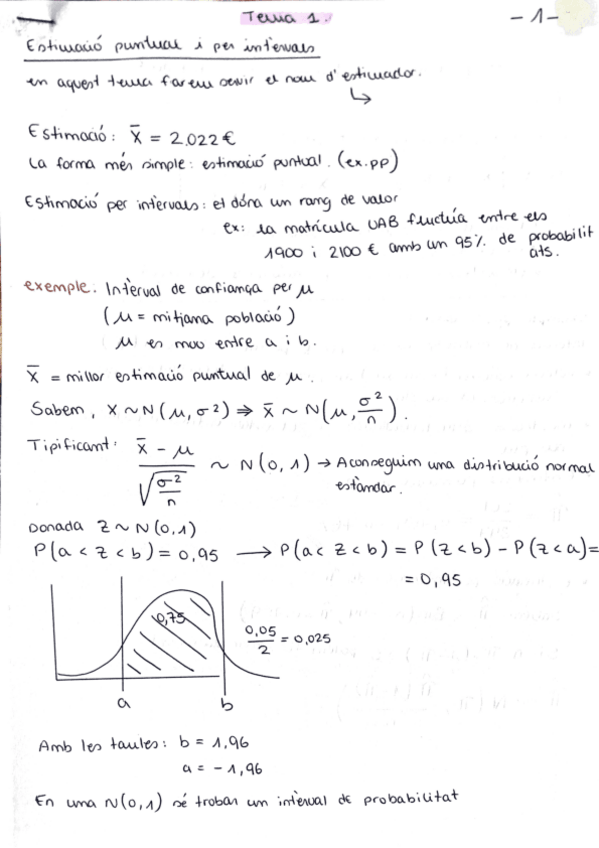 Tema 1.
- 1 -
Estimació puntual i per intervals
en aquest tema farem servir el nom d'estimador.
↳
Estimació: x̄ = 2.022 €
La forma més simple: estimació puntual. (ex.pp)
Estimació per intervals: et dóna un rang de valor
ex: la matrícula UAB fluctúa entre els
1900 i 2100 € amb un 95% de probabilit
ats.
exemple: Interval de confiança per μ
(μ = mitjana població)
μ es mou entre a i b.
x̄ = millor estimació puntual de μ.
Sabem, X ~ N(μ, σ²) ⇒ x̄ ~ N(μ, σ²/n).
Tipificant: (x̄ - μ) / √(σ²/n) ~ N(0, 1) → Aconseguim una distribució normal
estàndar.
Donada Z ~ N(0,1)
P(a < Z < b) = 0,95 → P(a < Z < b) = P(Z < b) - P(Z < a) =
= 0,95
0,75
0,05/2 = 0,025
a b
Amb les taules: b = 1,96
a = - 1,96
En una N(0,1) sé trobar un interval de probabilitat